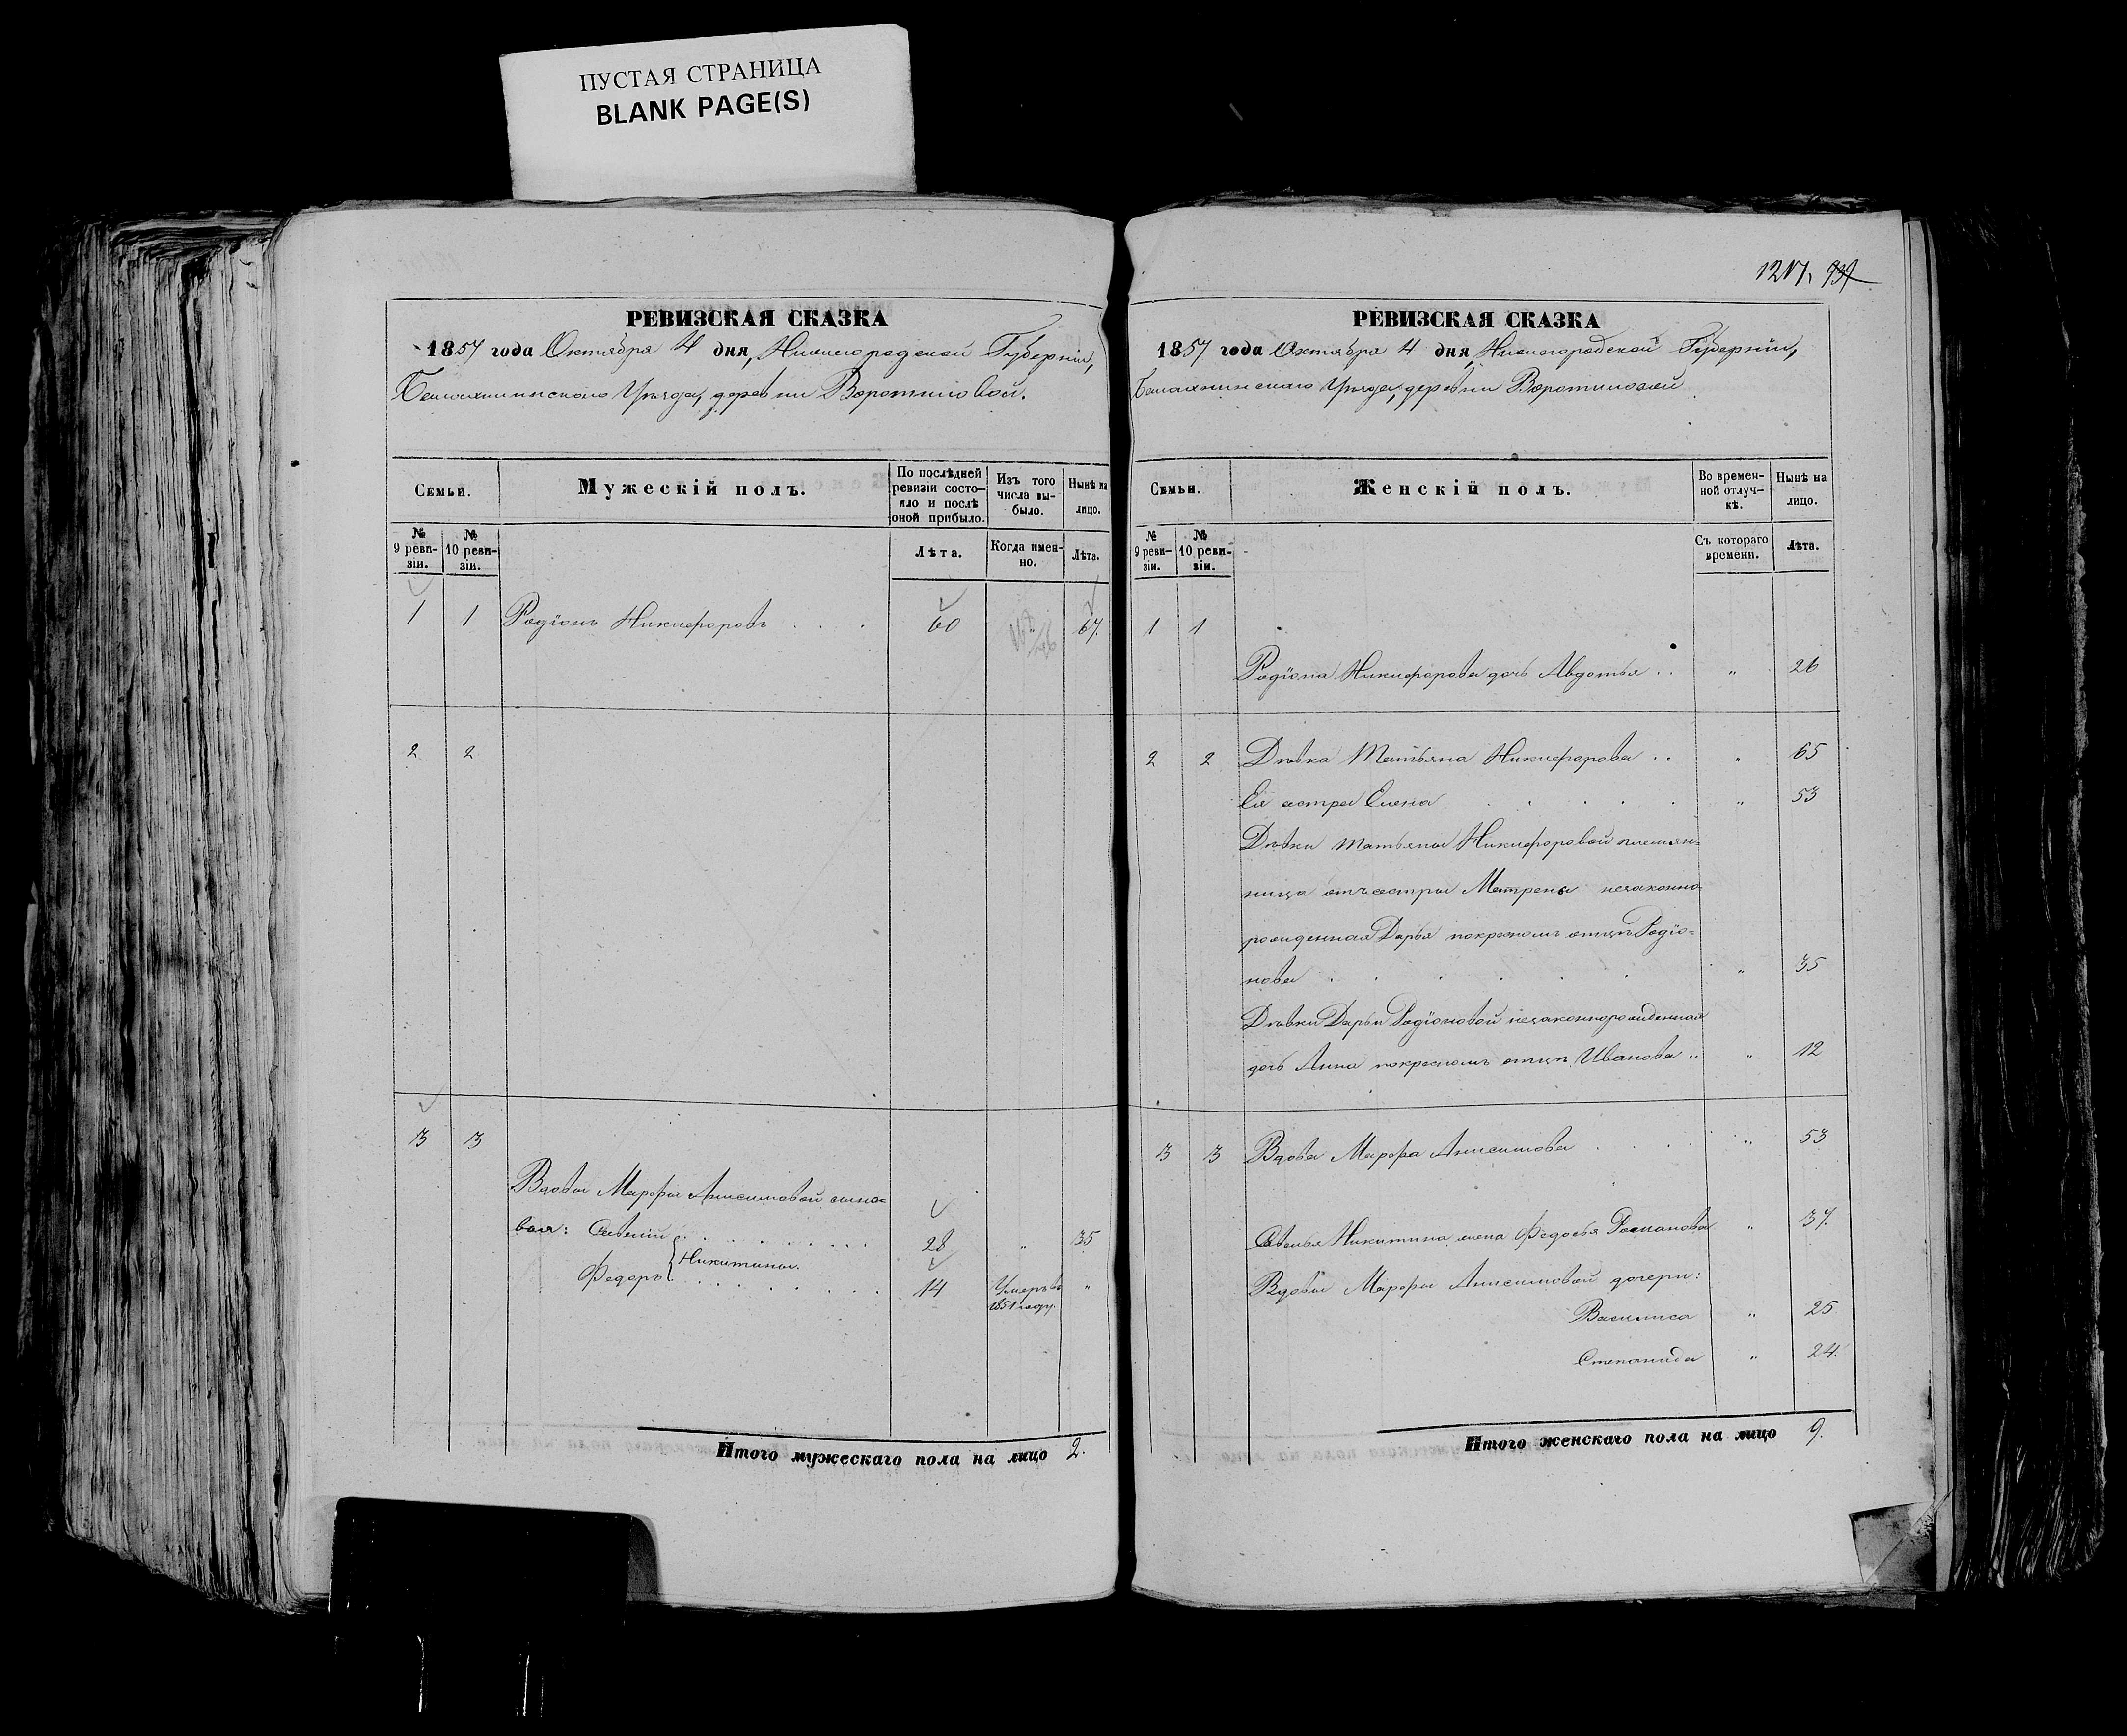 ПУСТАЯ СТРАНИЦА
BLANK PAGE(S)
РЕВИЗСКАЯ СКАЗКА
1857 года Октября 4 дня, Нижегородской Губернiи,
Балахнинскаго Уѣзда, деревни Воротиловой.
Семьи.
Мужескiй полъ.
По послѣдней ревизiи состо-
яло и послѣ
оной прибыло.
Изъ того
числа вы-
было.
Нынѣ на
лицо.
№
9 реви-
зiи.
№
10 реви-
зiи.
Лѣта.
Когда имен-
но.
Лѣта.
1 1 Родiонъ Никифоровъ . . . 60 " 67.
2 2
3 3
Вдовы Марфы Анисимовой сыно=
вья: Савелiй . . . . . . . . 28 " 35
Никитины.
Федоръ . . . . . . . 14 Умеръ въ "
1851 году.
Итого мужескаго пола на лицо 2.
1217. 937
РЕВИЗСКАЯ СКАЗКА
1857 года Октября 4 дня, Нижегородской Губернiи,
Балахнинскаго Уѣзда, деревни Воротиловой
Семьи.
Женскiй полъ.
Во времен-
ной отлуч-
кѣ.
Нынѣ на
лицо.
№
9 реви-
зiи.
№
10 реви-
зiи.
Съ котораго
времени.
Лѣта.
1 1
Родiона Никифорова дочь Авдотья . . " 26
2 2 Дѣвка Татьяна Никифорова . . " 65
Ея сестра Елена . . . . . " 53
Дѣвки Татьяны Никифоровой племян-
ница отъ сестры Матрены незаконно
рожденная Дарья покрестномъ отцѣ Родiо=
нова . . . . . . " 35
Дѣвки Дарьи Родiоновой незаконнорожденная
дочь Анна покрестномъ отцѣ Иванова " " 12
3 3 Вдова Марфа Анисимова . . . " 53
Савелья Никитина жена Федосья Романова " 37.
Вдовы Марфы Анисимовой дочери:
Василиса " 25
Степанида " 24.
Итого женскаго пола на лицо 9.